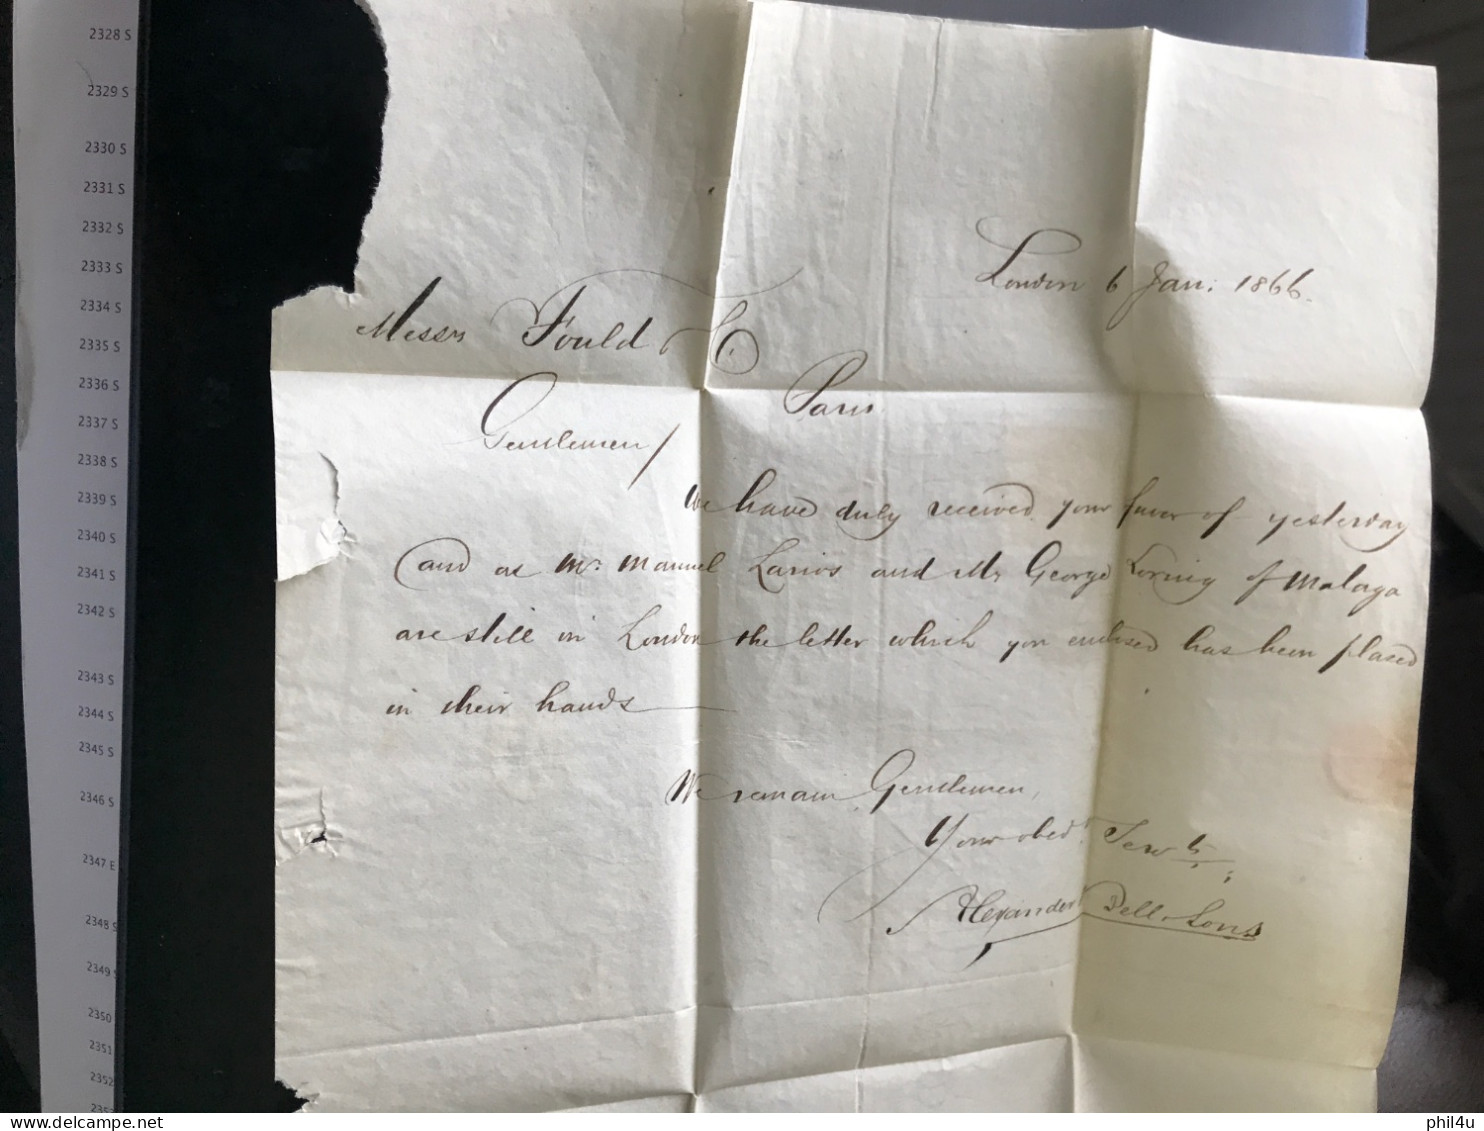 2328 S
2329 S
2330 S
2331 S
2332 S
2333 S
2334 S
2335 S
2336 S
2337 S
2338 S
2339 S
2340 S
2341 S
2342 S
2343 S
2344 S
2345 S
2346 S
2347 E
2348 S
2349 S
2350
2351
2352
London 6 Jan: 1866.
Messrs Fould & Co.
Paris
Gentlemen/
We have duly received your favor of yesterday
and as Mr. Manuel Larios and Mr George Loring of Malaga
are still in London the letter which you enclosed has been placed
in their hands
We remain Gentlemen,
Your obedt. Servts;
Alexander Dell & Sons
phil4u